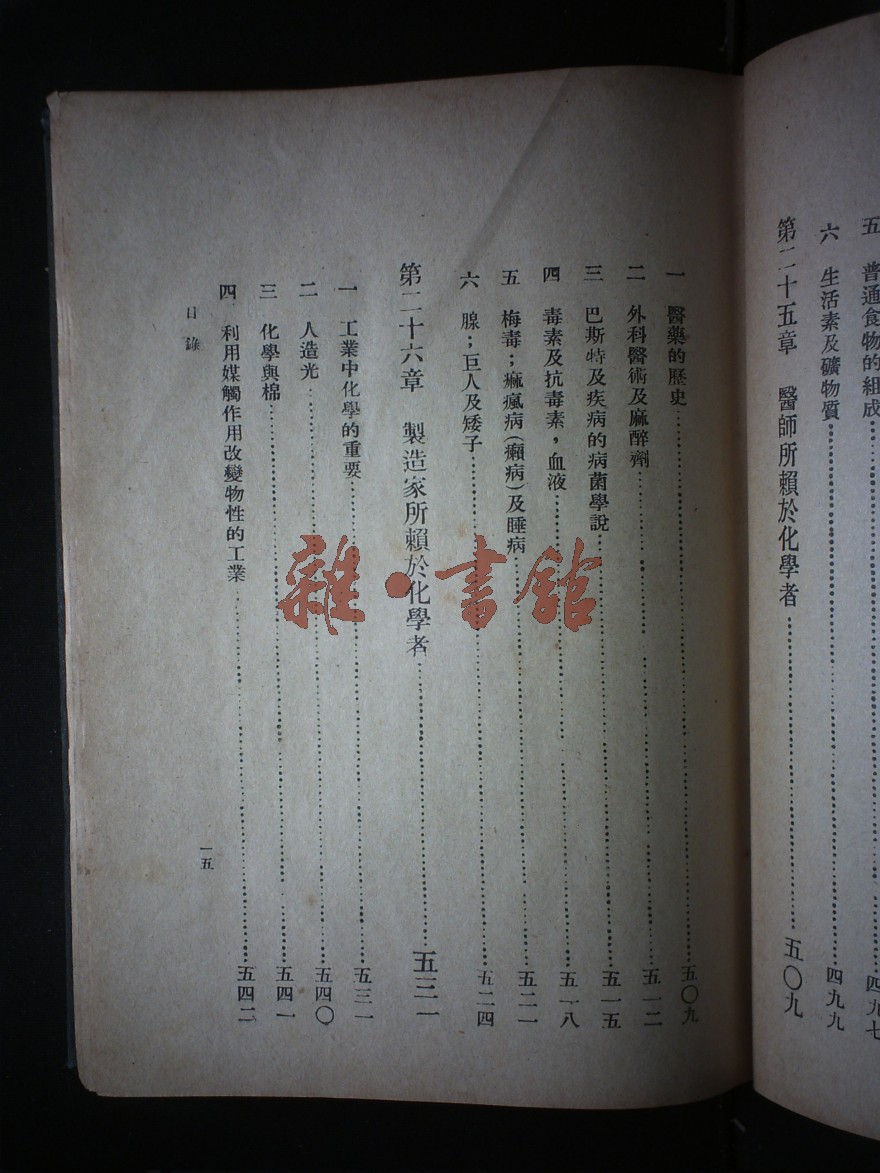 五　普通食物的組成……四九七
六　生活素及礦物質……四九九
第二十五章　醫師所賴於化學者……五〇九
一　醫藥的歷史……五〇九
二　外科醫術及麻醉劑……五一二
三　巴斯特及疾病的病菌學說……五一五
四　毒素及抗毒素，血液……五一八
五　梅毒；痲瘋病（癩病）及睡病……五二一
六　腺；巨人及矮子……五二四
第二十六章　製造家所賴於化學者……五三一
一　工業中化學的重要……五三一
二　人造光……五四〇
三　化學與棉……五四一
四　利用媒觸作用改變物性的工業……五四二
目錄
一五
雜·書館